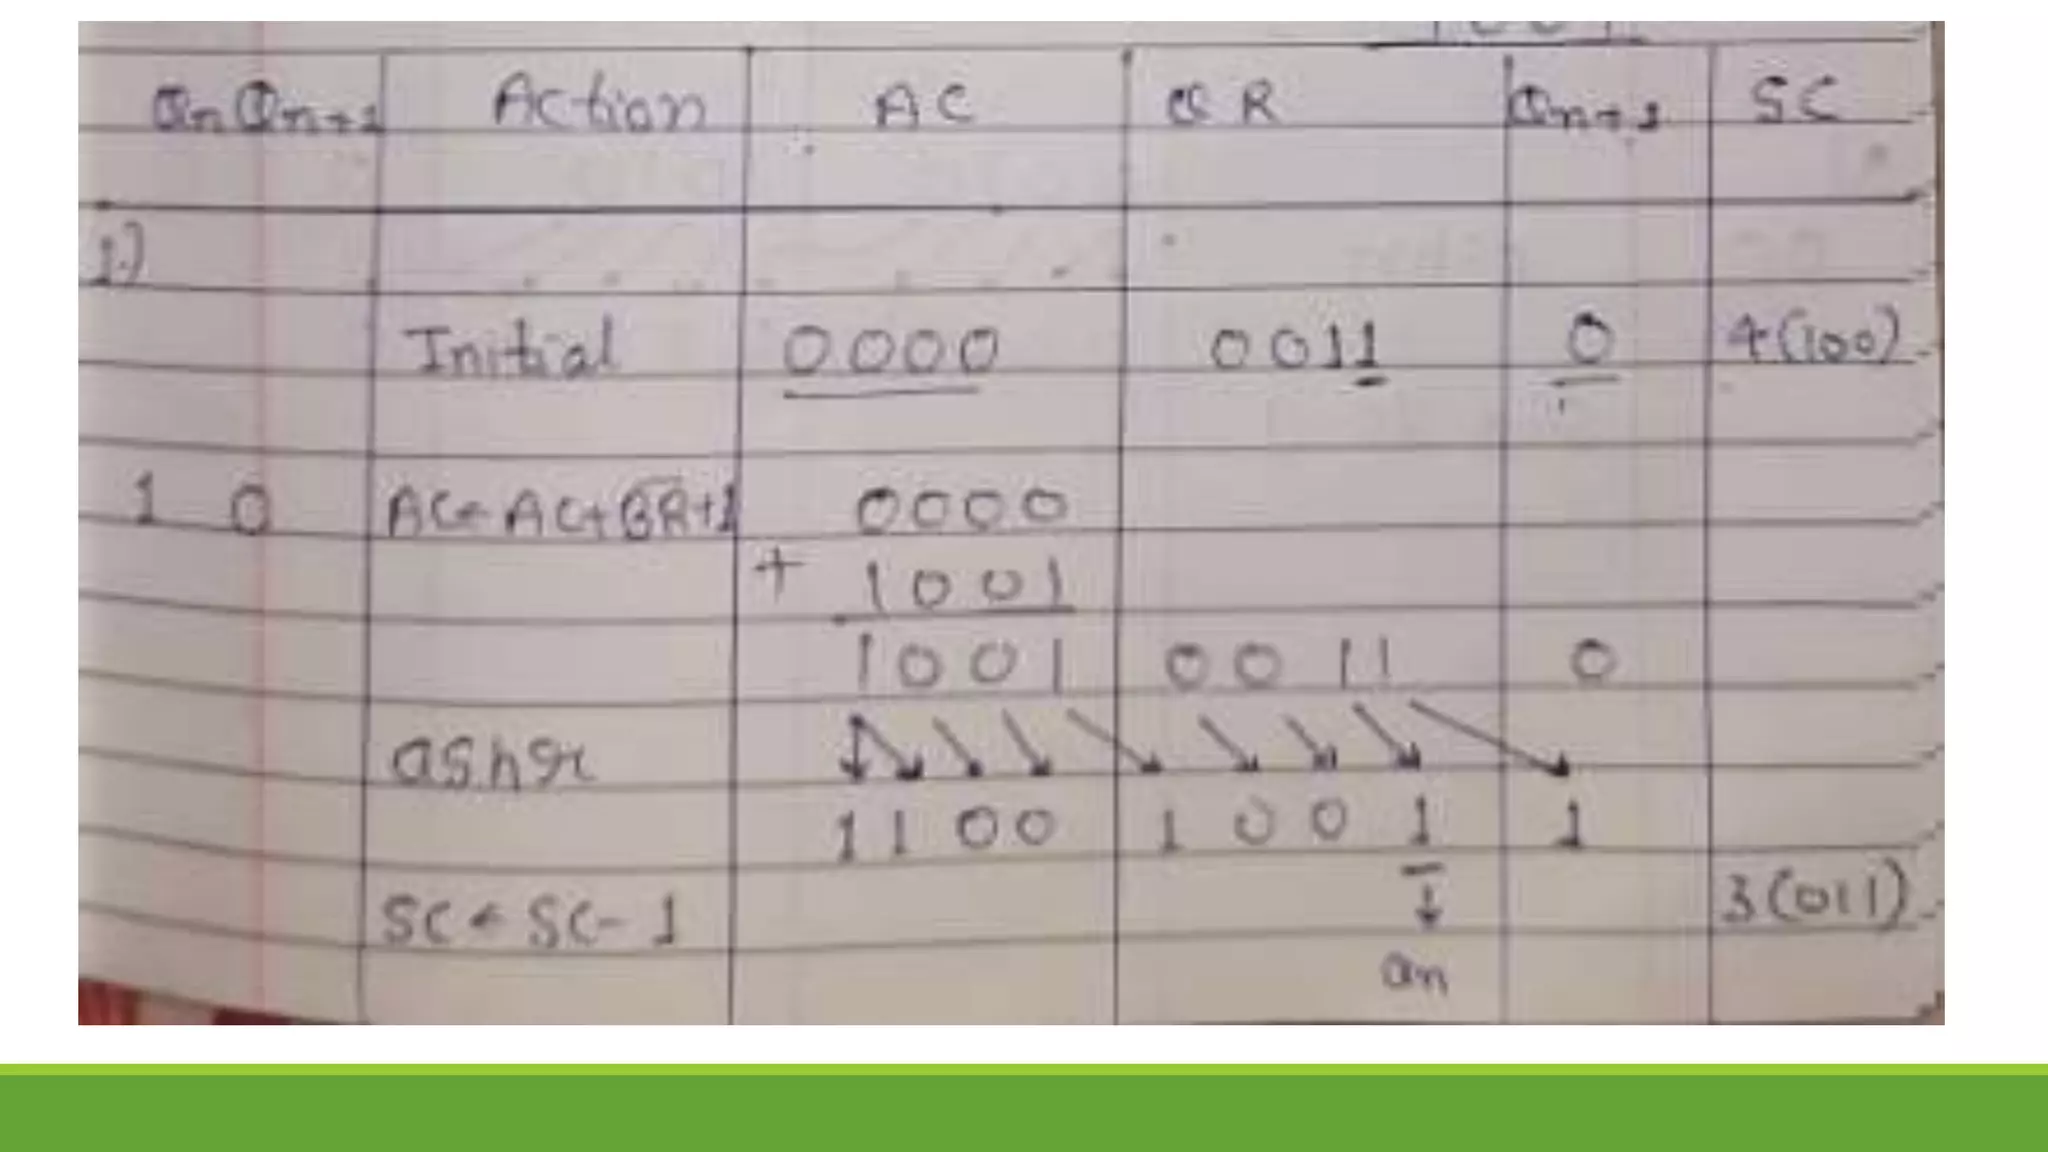 1001
Qn Qn+1 Action AC QR Qn+1 SC
1.)
Initial 0000 0011 0 4(100)
1 0 AC←AC+B̅R̅+1 0000
+ 1001
1001 0011 0
ashr
1100 1001 1
SC←SC-1 3(011)
Qn